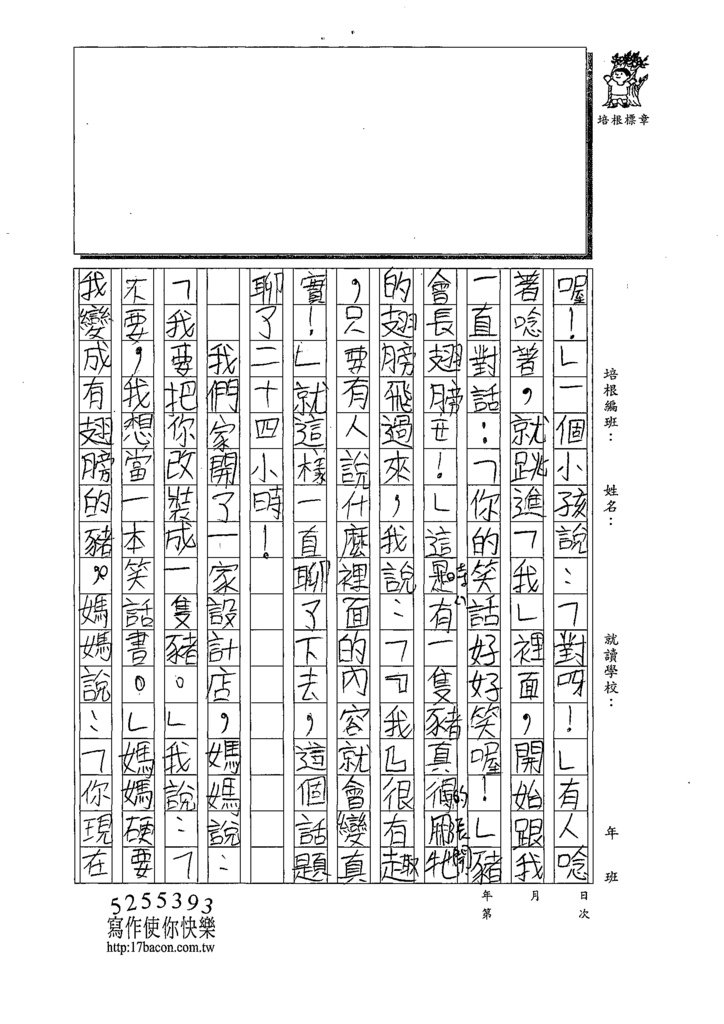 培根標章
培根編班： 姓名： 就讀學校： 年 班
日 月 年
次 第
喔！」一個小孩說：「對呀！」有人唸
著唸著，就跳進「我」裡面，開始跟我
一直對話：「你的笑話好好笑喔！」豬
會長翅膀ㄝ！」這是時有一隻豬真得的用張開牠
的翅膀飛過來，我說：「『我』很有趣
，只要有人說什麼裡面的內容就會變真
實！」就這樣一直聊了下去，這個話題
聊了二十四小時！
我們家開了一家設計店，媽媽說：
「我要把你改裝成一隻豬。」我說：「
不要，我想當一本笑話書。」媽媽硬要
我變成有翅膀的豬，媽媽說：「你現在
5255393
寫作使你快樂
http:17bacon.com.tw